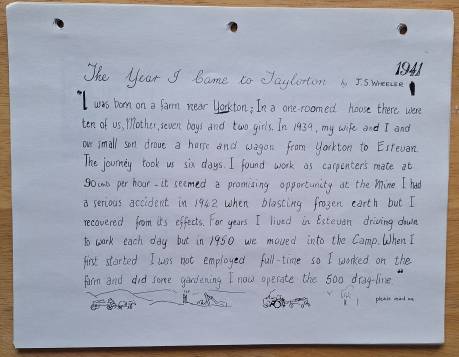 1941
The Year I Came to Taylorton by J.S. WHEELER
"I was born on a farm near Yorkton; In a one-roomed house there were
ten of us, Mother, seven boys and two girls. In 1939, my wife and I and
our small son drove a horse and wagon from Yorkton to Estevan.
The journey took us six days. I found work as carpenter's mate at
90 per hour - it seemed a promising opportunity at the Mine I had
a serious accident in 1942 when blasting frozen earth but I
recovered from its effects. For years I lived in Estevan driving down
to work each day but in 1950 we moved into the Camp. When I
first started I was not employed full-time so I worked on the
farm and did some gardening I now operate the 500 drag-line"
please read on